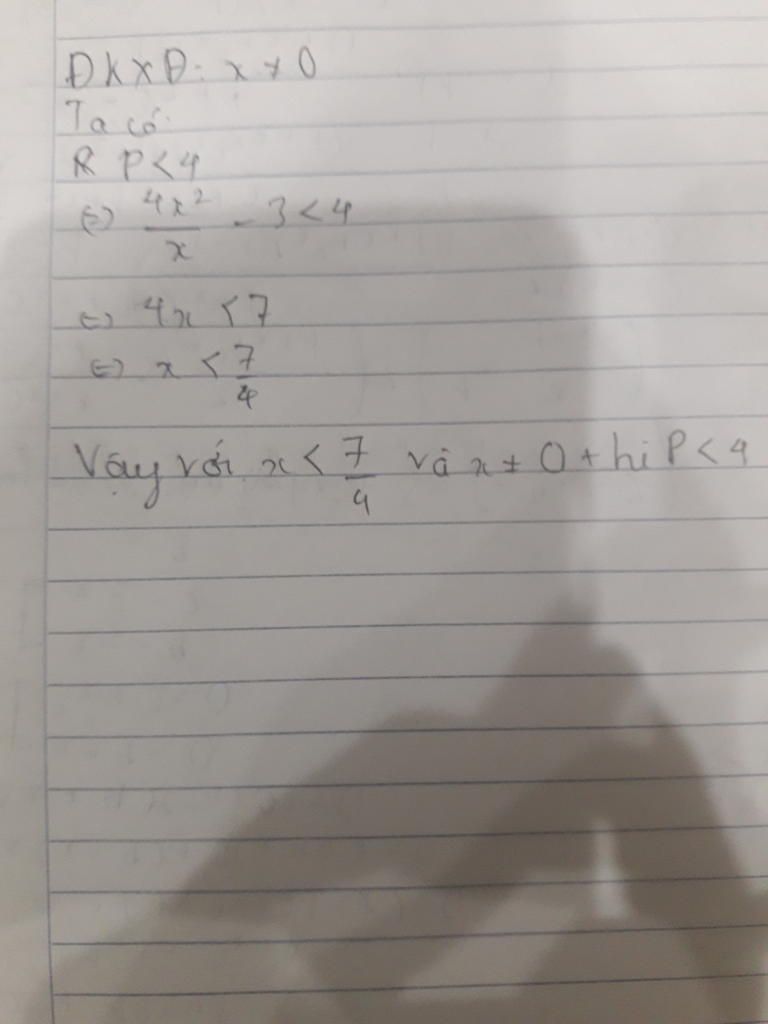 ĐKXĐ: x ≠ 0
Ta có:
P < 4
⇔ 4x²/x - 3 < 4
⇔ 4x < 7
⇔ x < 7/4
Vậy với x < 7/4 và x ≠ 0 thì P < 4